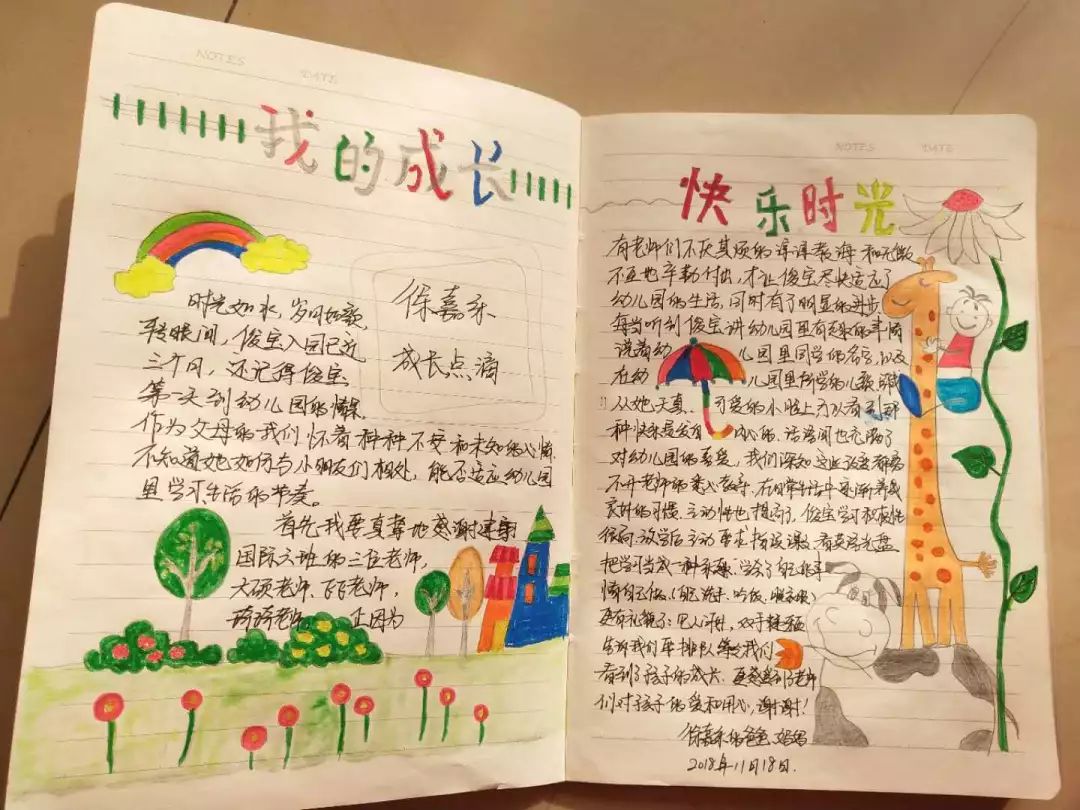 NOTES DATE
我的成长
徐嘉禾
成长点滴
时光如水,岁月如歌
转眼间,俊宝入园已近
三个月,还记得俊宝
第一天到幼儿园的情景
作为父母的我们怀着种种不安和未知的心情
不知道她如何与小朋友们相处,能否适应幼儿园
里学习生活的节奏。
首先我要真挚地感谢建新
国际六班的三位老师,
大硕老师、
琦琦老师。正因为
NOTES DATE
快乐时光
有老师们不厌其烦的谆谆教诲和无微
不至地辛勤付出,才让俊宝尽快适应了
幼儿园的生活,同时有了明显的进步
每当听到俊宝讲幼儿园里有趣的事情
说着幼儿园里同学的名字,以及
在幼儿园里所学的儿歌
从她天真、可爱的小脸上可以看到那
种快乐是发自内心的,话语间也充满了
对幼儿园的喜爱,我们深知这些改变都离
不开老师的悉心教导,在日常生活中逐渐养成
良好的习惯、主动性也提高了,俊宝学习积极性
很高,放学后主动要求指读课、看英语光盘
把学习当成一种乐趣,学会了自己的事
情自己做(自己洗手、吃饭、
更有礼貌了:见人
告诉我们要排队等。我们
看到了孩子的成长,更感受到了老师
们对孩子的爱和用心,谢谢!
徐嘉禾的爸爸、妈妈
2018年11月18日.